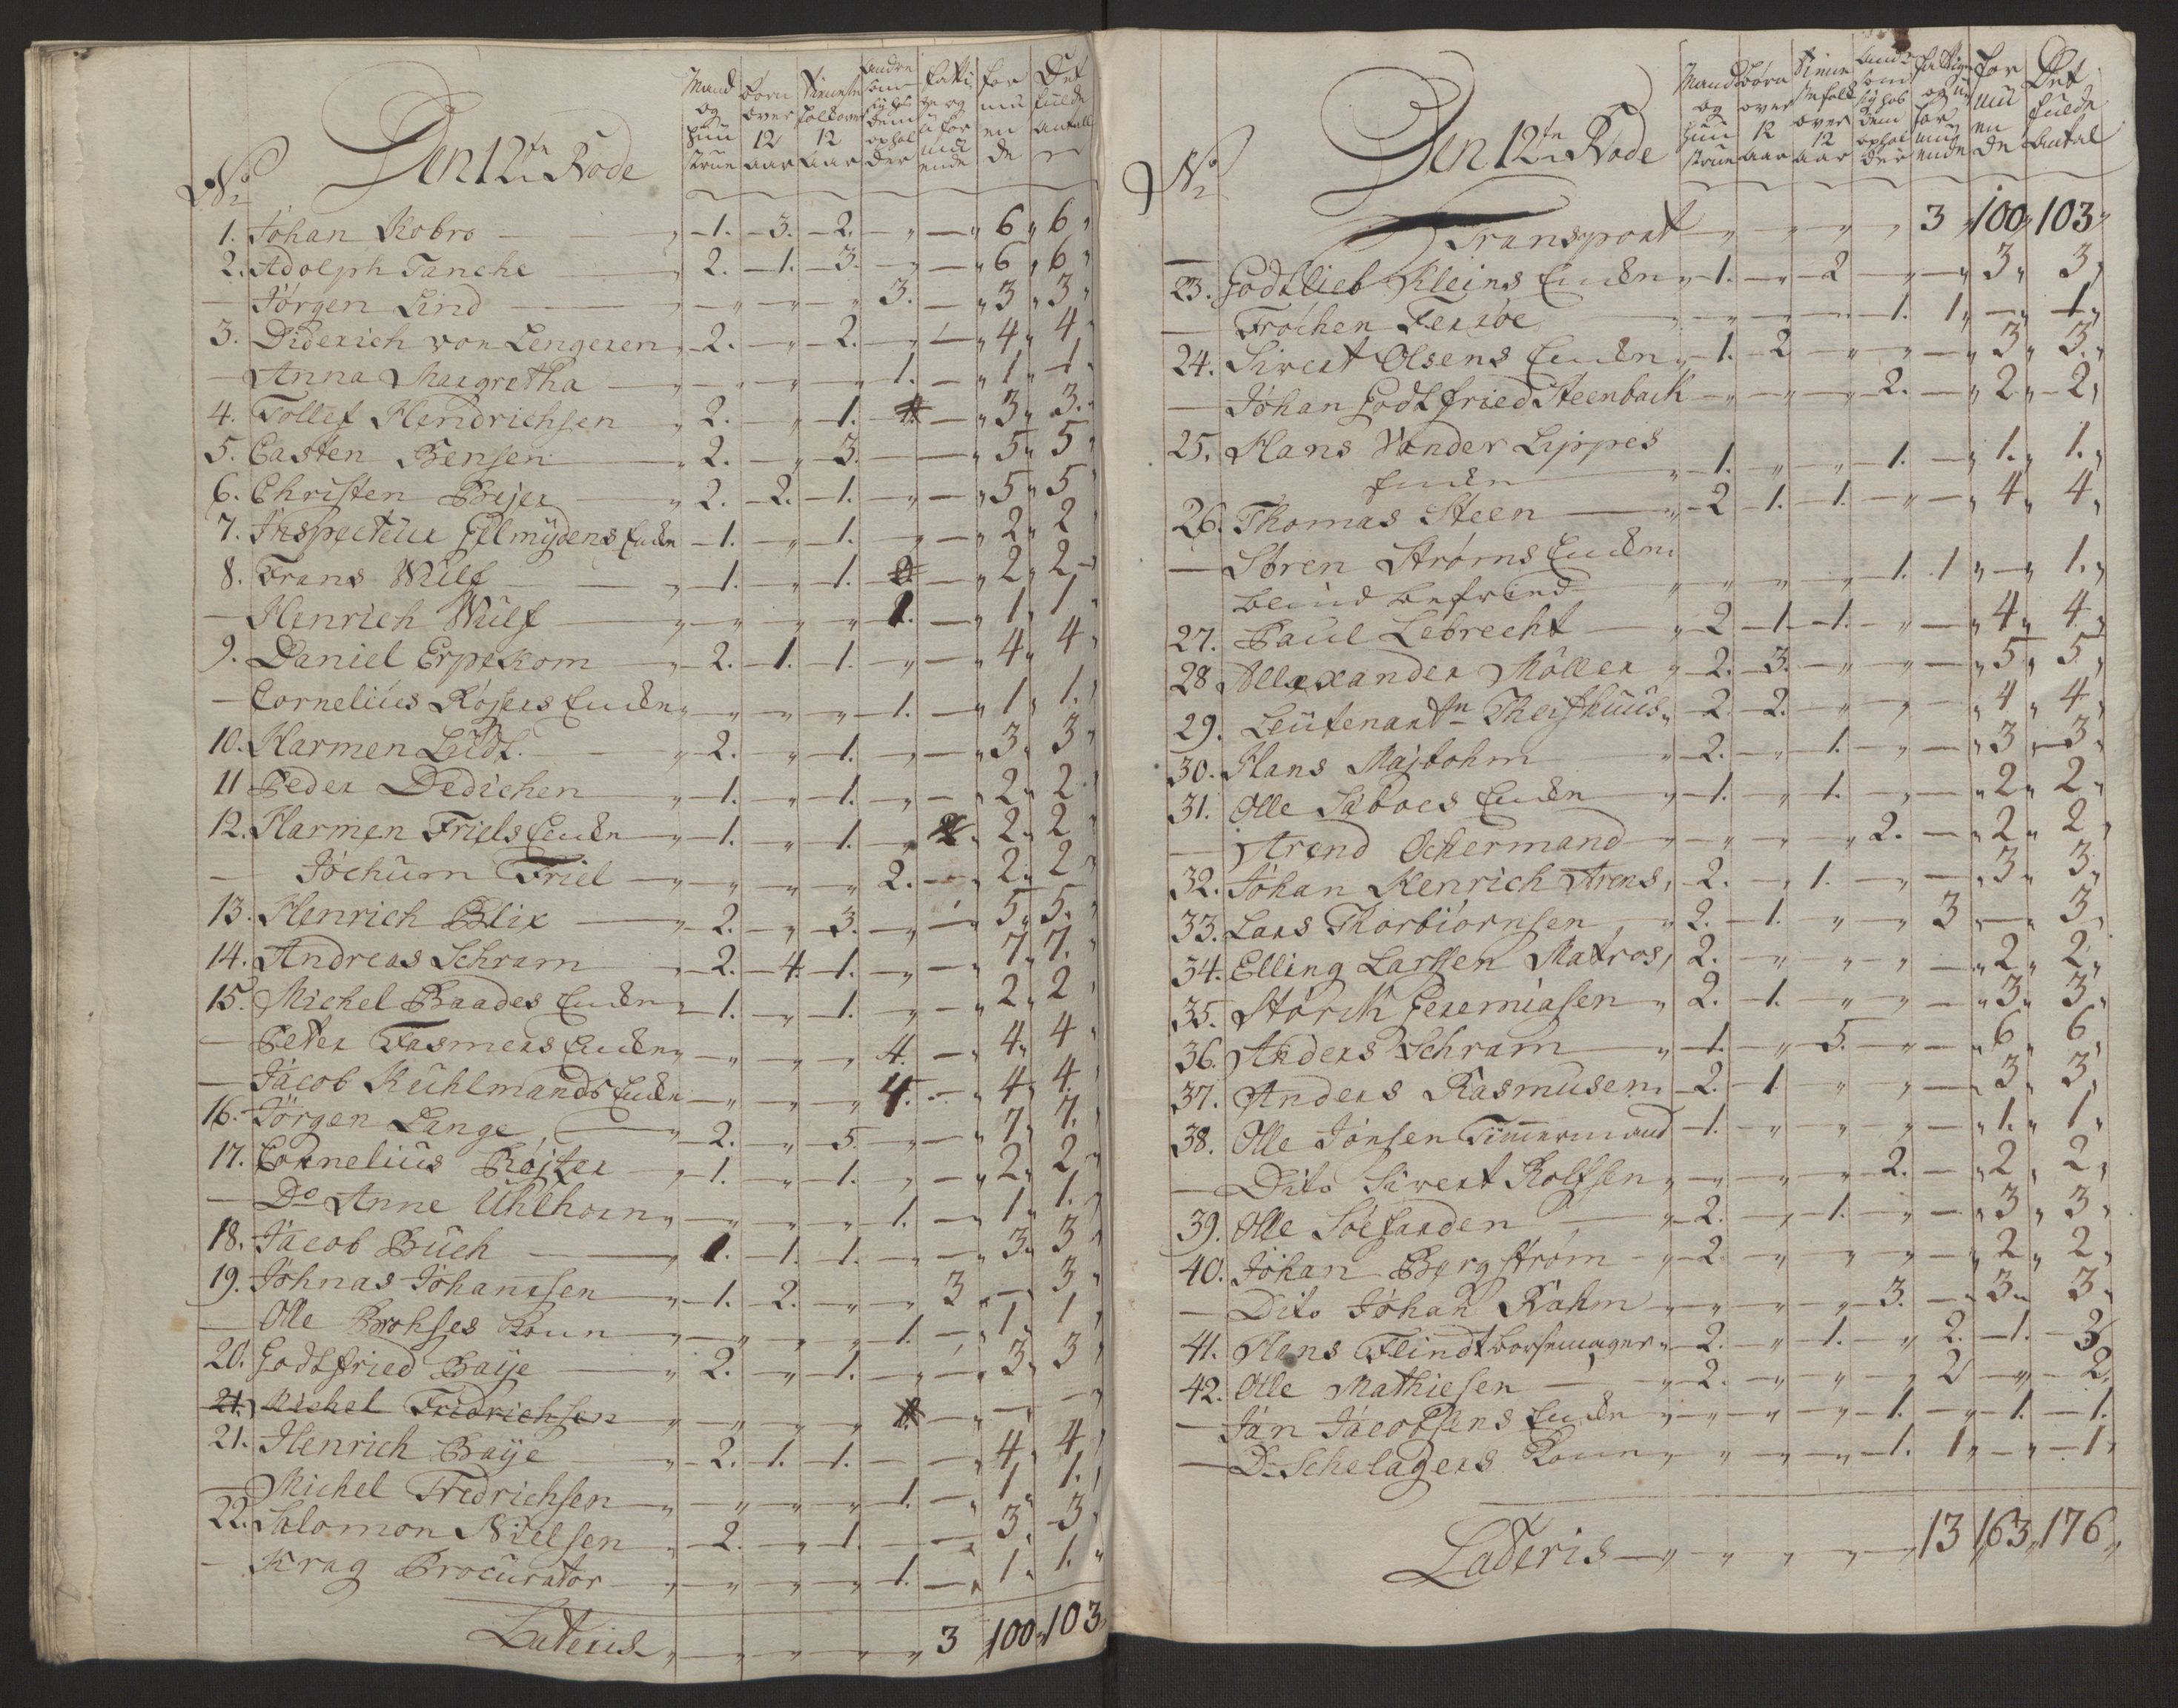 No
Den 12te Rode
Mand og Hustrue
børn over 12 aar
Tieneste folk over 12 aar
andre som sig hos dem opholder
fatti ge og uformuende
for mu en de
Det fulde antall
1. Johan Kobro - 1. - 3. - 2. - " - " 6 " 6 "
2. Adolph Tanche " 2. - 1. - 3. - " - " 6 " 6 "
- Jørgen Lind " - " - " - " 3. - " 3 " 3 "
3. Diderich von Lengeren " 2. - " - 2. - " - " 4 " 4 "
- Anna Margretha " - " - " - " 1. - " 1 " 1 "
4. Tollef Hendrichsen " 2. - " - 1. - " 3 " 3. "
5. Casten Bensen " 2. - " - 3. - " 5 " 5 "
6. Christen Bejer " 2. - 2. - 1. - " - " 5 " 5 "
7. Inspecteur Gelmÿdens Enchen - 1. - " - 1. - " - " 2 " 2 "
8. Frans Wülf " - 1. - " - 1. - " 2 " 2 "
- Henrich Wülf " - " - " - " 1. - " 1 " 1 "
9. Daniel Erpekom " 2. - 1. - 1. - " - " 4 " 4 "
- Cornelius Røjers Enchen " - " - " - " 1. - " 1 " 1. "
10. Harmen Lüdt. " 2. - " - 1. - " - " 3 " 3 "
11 Peder Dedichen " 1. - " - 1. - " - " 2 " 2 "
12. Harmen Friels Enchen " 1. - " - 1. - " 2 " 2 "
- Jochum Friel " - " - " - " 2. - " 2 " 2 "
13. Henrich Blix " 2. - " - 3. - " - " 5 " 5. "
14. Andreas Schram " 2. - 4. - 1. - " - " 7 " 7. "
15. Michel Baades Enchen " 1. - " - 1. - " - " 2 " 2 "
- Peter Fasmers Enchen " - " - " - " 4. - " 4 " 4 "
- Jacob Kühlmands Enchen - " - " - " 4. - " 4 " 4. "
16. Jörgen Lange " 2. - " - 5. - " - " 7 " 7. "
17. Cornelius Røjter " 1. - " - 1. - " - " 2 " 2 "
- Do Anne Uhlhorn " - " - " - " 1. - " 1 " 1. "
18. Jacob Büch " 1. - 1. - 1. - " - " 3. 3 "
19. Johnas Johansen " 1. - 2. - " - " 3 " - 3 "
- Olle Brohses Koun " - " - " - " 1. - " 1 " 1 "
20. Godtfried Baÿe " 2. - " - 1. - " - " 3 " 3 "
21. Michel Fridrichsen " - " - " - " - " - " - "
21. Henrich Baÿe " 2. - 1. - 1. - " 4 " 4 "
- Michel Fredrichsen " - " - " - " 1. - " 1 " 1. "
22. Salomon Nielsen " 2. - " - 1. - " 3 " 3 "
- Krag Procurator " - " - " - " 1. - " 1 " 1. "
Lateris " - " - " - " - " 3 100 " 103
No
Den 12te Rode
Mand og Hustrue
børn over 12 aar
Tienestefolk over 12 aar
andre som sig hos dem opholder
fattige og uformuende
for mu en de
Det fulde Antal
Transport " - " - " - " 3 " 100 " 103 "
23. Godtlieb Kleins Enchen " 1. - " - 2 - " - " 3 " 3 "
- Frøchen Ferrøe " - " - " - " 1. 1 " - " 1 "
24. Sivert Olsens Enchen " 1. - 2 - " - " - " 3 " 3. "
- Johan Godtfried Steenbach - " - " - " 2. - " 2 " 2 "
25. Hans Vonder Lippes
Enchen " 1. - " - " 1. - " 1. " 1. "
26. Thomas Steen " 2 - 1. - 1. - " - " 4 " 4 "
- Søren Strøms Enchen
" - " - " - " 1. 1 " - " 1. "
27. Paul Lebrecht " 2 - 1. - 1. - " - " 4 " 4. "
28 Allexander Møller " 2. - 3. - " - " - " 5 " 5 "
29. Leutenant Theishuus " 2. - 2. - " - " - " 4 " 4 "
30. Hans Majbohm " 2. - " - 1. - " - " 3 " 3 "
31. Olle Saboes Enchen " 1. - " - 1. - " - " 2 " 2 "
- Arend Ockermand " - " - " - " 2. - " 2 " 2 "
32. Johan Henrich Arens " 2. - " 1. - " - " 3 " 3 "
33. Lars Thorbiørnsen " 2. - 1. " " 3 " - " 3 "
34. Elling Larssen Matros " 2. - " - " - " - " 2 " 2 "
35. Størck Jeremiasen " 2. - 1. - " - " - " 3 " 3 "
36. Anders Schram " 1. - " 5. - " - " 6 " 6 "
37. Anders Rasmusen " 2. - 1. " - " - " 3 " 3 "
38. Olle Jonsen Timmermand - 1. - " - " - " - " 1. " 1 "
- Dito Sivert Rolfsen " - " - " - " 2. - " 2 " 2 "
39. Olle Søefarden " 2. - " - 1. - " - " 3 " 3 "
40. Johan Bergstrøm " 2 - " - " - " - " 2 " 2 "
- Dito Johan Rahm " - " - " - " 3. - " 3 " 3 "
41. Hans Flindt børsemager " 2. - " 1. - " 2. - 1. - 3
42. Olle Mathiesen " 2. - " - " - " 2 - " - 2 "
- Jan Jacobsens Enchen " - " - " - 1. - " 1. - 1.
- Do Schelagers Koun " - " - " - 1. 1 " - " - 1 "
Lateris - " - " - " - " - " 13 163 " 176 "